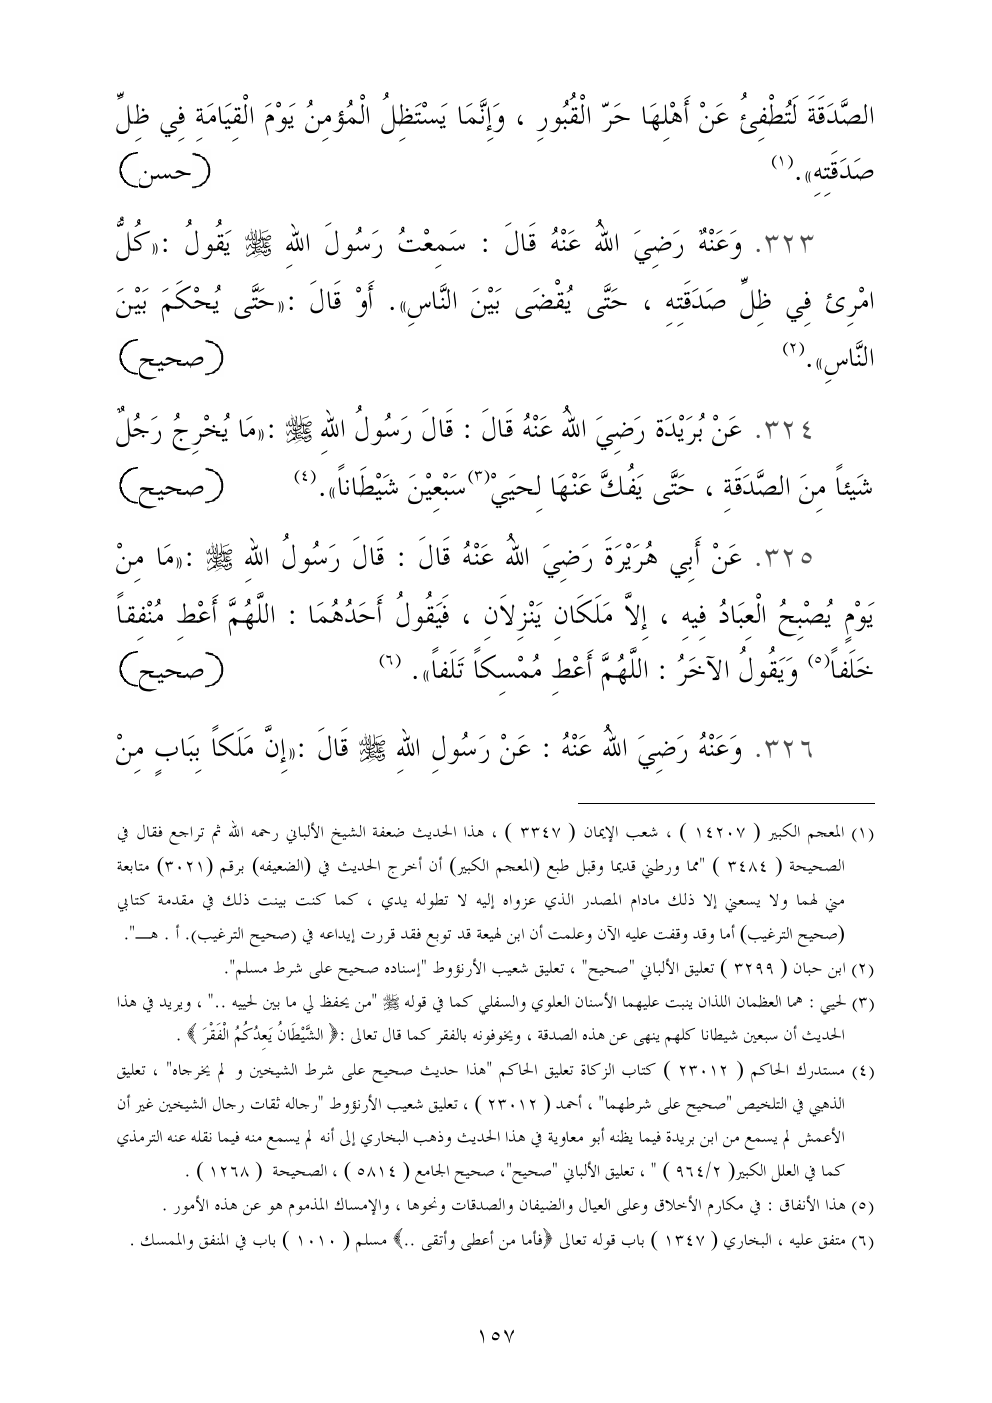 الصَّدَقَةَ لَتُطْفِئُ عَنْ أَهْلِهَا حَرّ الْقُبُورِ ، وَإِنَّمَا يَسْتَظِلُ الْمُؤمِنُ يَوْمَ الْقِيَامَةِ فِي ظِلِّ
صَدَقَتِهِ».(١) (حسن)
٣٢٣. وَعَنْهُ رَضِيَ اللهُ عَنْهُ قَالَ : سَمِعْتُ رَسُولَ اللهِ ﷺ يَقُولُ :«كُلُّ
امْرِئ فِي ظِلِّ صَدَقَتِهِ ، حَتَّى يُقْضَى بَيْنَ النَّاسِ». أَوْ قَالَ :«حَتَّى يُحْكَمَ بَيْنَ
النَّاسِ».(٢) (صحيح)
٣٢٤. عَنْ بُرَيْدَة رَضِيَ اللهُ عَنْهُ قَالَ : قَالَ رَسُولُ اللهِ ﷺ :«مَا يُخْرِجُ رَجُلٌ
شَيئاً مِنَ الصَّدَقَةِ ، حَتَّى يَفُكَّ عَنْهَا لِحيَيْ(٣)سَبْعِيْنَ شَيْطَاناً».(٤) (صحيح)
٣٢٥. عَنْ أَبِي هُرَيْرَةَ رَضِيَ اللهُ عَنْهُ قَالَ : قَالَ رَسُولُ اللهِ ﷺ :«مَا مِنْ
يَوْمٍ يُصْبِحُ الْعِبَادُ فِيهِ ، إِلاَّ مَلَكَانِ يَنْزِلاَنِ ، فَيَقُولُ أَحَدُهُمَا : اللَّهُمَّ أَعْطِ مُنْفِقاً
خَلَفاً(٥) وَيَقُولُ الآخَرُ : اللَّهُمَّ أَعْطِ مُمْسِكاً تَلَفاً». (٦) (صحيح)
٣٢٦. وَعَنْهُ رَضِيَ اللهُ عَنْهُ : عَنْ رَسُولِ اللهِ ﷺ قَالَ :«إِنَّ مَلَكاً بِبَابٍ مِنْ
(١) المعجم الكبير ( ١٤٢٠٧ ) ، شعب الإيمان ( ٣٣٤٧ ) ، هذا الحديث ضعفة الشيخ الألباني رحمه الله ثم تراجع فقال في
الصحيحة ( ٣٤٨٤ ) "مما ورطني قديما وقبل طبع (المعجم الكبير) أن أخرج الحديث في (الضعيفه) برقم (٣٠٢١) متابعة
مني لهما ولا يسعني إلا ذلك مادام المصدر الذي عزواه إليه لا تطوله يدي ، كما كنت بينت ذلك في مقدمة كتابي
(صحيح الترغيب) أما وقد وقفت عليه الآن وعلمت أن ابن لهيعة قد توبع فقد قررت إيداعه في (صحيح الترغيب). أ . هـ".
(٢) ابن حبان ( ٣٢٩٩ ) تعليق الألباني "صحيح" ، تعليق شعيب الأرنؤوط "إسناده صحيح على شرط مسلم".
(٣) لحيي : هما العظمان اللذان ينبت عليهما الأسنان العلوي والسفلي كما في قوله ﷺ "من يحفظ لي ما بين لحييه .." ، ويريد في هذا
الحديث أن سبعين شيطانا كلهم ينهى عن هذه الصدقة ، ويخوفونه بالفقر كما قال تعالى :﴿ الشَّيْطَانُ يَعِدُكُمُ الْفَقْرَ ﴾ .
(٤) مستدرك الحاكم ( ٢٣٠١٢ ) كتاب الزكاة تعليق الحاكم "هذا حديث صحيح على شرط الشيخين و لم يخرجاه" ، تعليق
الذهبي في التلخيص "صحيح على شرطهما" ، أحمد ( ٢٣٠١٢ ) ، تعليق شعيب الأرنؤوط "رجاله ثقات رجال الشيخين غير أن
الأعمش لم يسمع من ابن بريدة فيما يظنه أبو معاوية في هذا الحديث وذهب البخاري إلى أنه لم يسمع منه فيما نقله عنه الترمذي
كما في العلل الكبير( ٩٦٤/٢ ) " ، تعليق الألباني "صحيح"، صحيح الجامع ( ٥٨١٤ ) ، الصحيحة ( ١٢٦٨ ) .
(٥) هذا الأنفاق : في مكارم الأخلاق وعلى العيال والضيفان والصدقات ونحوها ، والإمساك المذموم هو عن هذه الأمور .
(٦) متفق عليه ، البخاري ( ١٣٤٧ ) باب قوله تعالى ﴿فأما من أعطى وأتقى ..﴾ مسلم ( ١٠١٠ ) باب في المنفق والممسك .
١٥٧